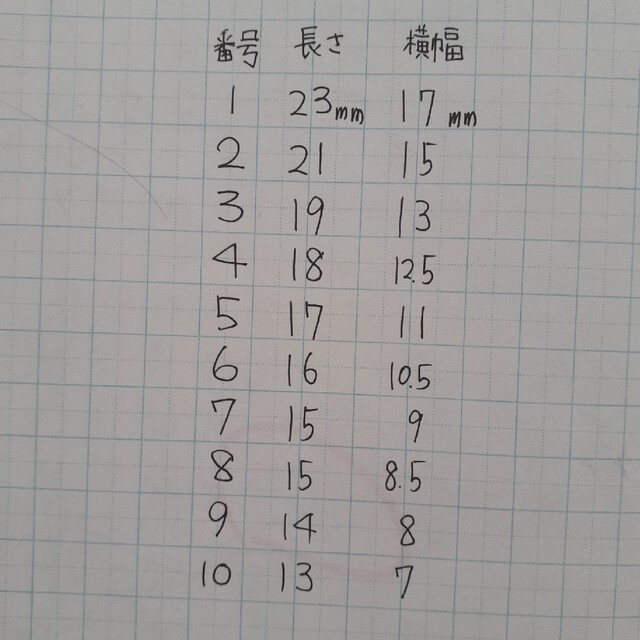 番号 長さ 横幅
1 23mm 17mm
2 21 15
3 19 13
4 18 12.5
5 17 11
6 16 10.5
7 15 9
8 15 8.5
9 14 8
10 13 7